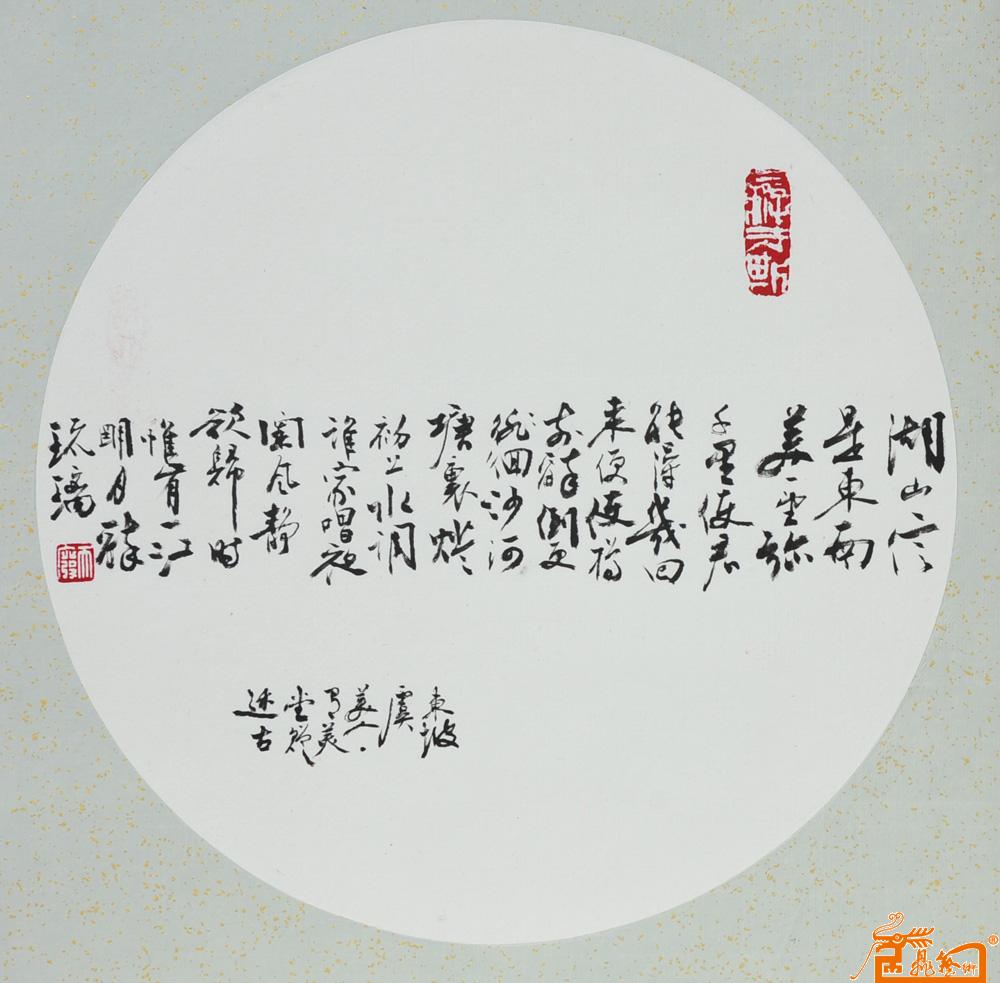 湖山信
是東南
美一望弥
千里使君
能得幾回
来便使樽
前醉倒更
徘徊沙河
塘裏燈
初上水調
誰家唱夜
闌风静
欲歸时
惟有一江
明月碧
琉璃
東坡
虞
美人·
有美
堂贈
述古